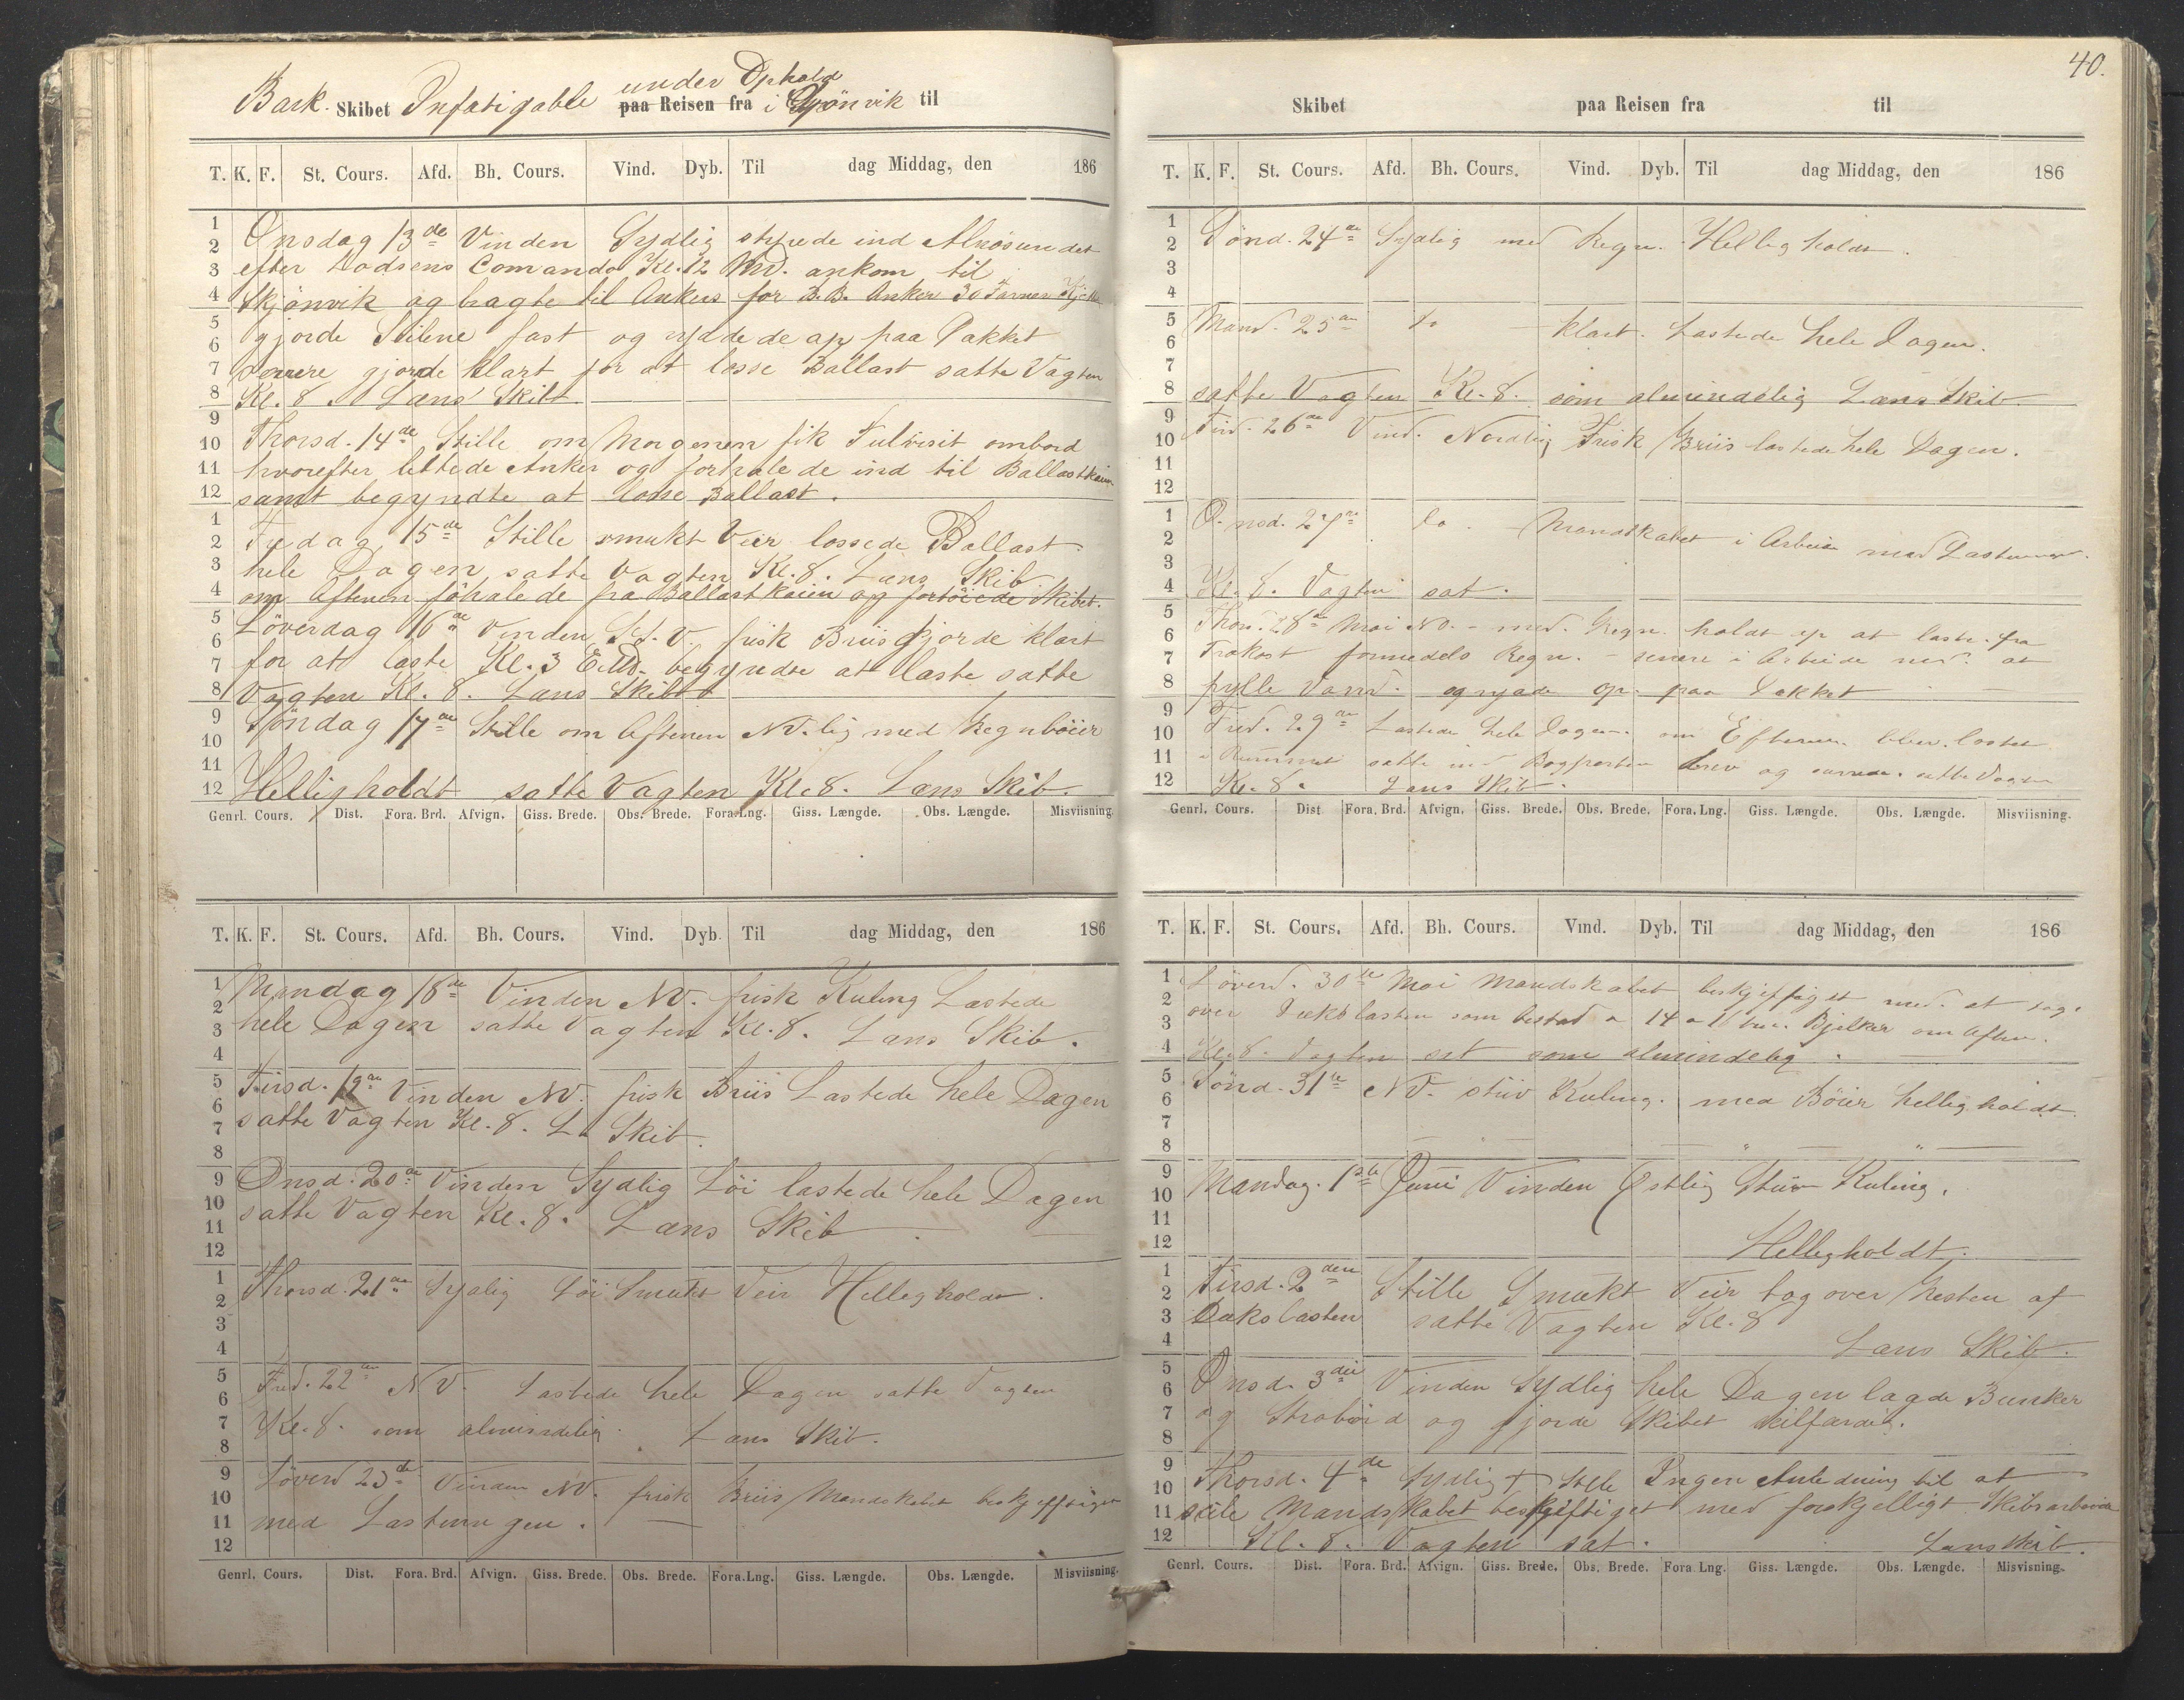 under Ophold
Bark Skibet Infatigable paa Reisen fra i Skjönvik til
T. K. F. St. Cours. Afd. Bh. Cours. Vind. Dyb. Til dag Middag, den 186
1
2
3
4
5
6
7
8
9
10
11
12
1
2
3
4
5
6
7
8
9
10
11
12
Onsdag 13de Vinden Sydlig styrede ind Alnösundet
efter Lodsens Comando Kl. 12 Md. ankom til
Skjönvik og bragte til Ankers for B.B. Anker 30 Favner
gjorde Seilene fast og ryddede op paa Dækket
senere gjorde klart for at losse Ballast satte Vagten
Kl. 8 Læns Skib
Thorsd. 14de Stille om Morgenen fik Tulvisit ombord
hvorefter lettede Anker og forhalede ind til Ballastkaien
samt begyndte at losse Ballast.
Fredag 15de Stille smukt Veir lossede Ballast
hele Dagen satte Vagten Kl. 8. Læns Skib
om Aftenen föhalede fra Ballastkaien og fortöiede Skibet.
Löverdag 16de Vinden S.V. frisk Briis Gjorde klart
for at laste Kl. 3 Emd. begyndte at laste satte
Vagten Kl. 8. Læns Skib
Söndag 17de Stille om Aftenen NV.lig med Regnböier
Helligholdt satte Vagten Kl. 8. Læns Skib.
Genrl. Cours. Dist. Fora. Brd. Afvign. Giss. Brede. Obs. Brede. Fora. Lng. Giss. Længde. Obs. Længde. Misviisning.
T. K. F. St. Cours. Afd. Bh. Cours. Vind. Dyb. Til dag Middag, den 186
1
2
3
4
5
6
7
8
9
10
11
12
1
2
3
4
5
6
7
8
9
10
11
12
Mandag 18de Vinden NV. frisk Kuling Lastede
hele Dagen satte Vagten Kl. 8. Læns Skib.
Tirsd. 19de Vinden NV. frisk Briis Lastede hele Dagen
satte Vagten Kl. 8. L. Skib.
Onsd. 20de Vinden Sydlig Löi lastede hele Dagen
satte Vagten Kl. 8. Læns Skib
Thorsd. 21de Sydlig Löi Smukt Veir Helligholdt.
Fred. 22de NV. Lastede hele Dagen satte Vagten
Kl. 8. som almindelig. Læns Skib.
Löverd 23de Vinden NV. frisk Briis Mandskabet beskjeftiget
med Lastningen.
Genrl. Cours. Dist. Fora. Brd. Afvign. Giss. Brede. Obs. Brede. Fora. Lng. Giss. Længde. Obs. Længde. Misviisning.
40.
Skibet paa Reisen fra til
T. K. F. St. Cours. Afd. Bh. Cours. Vind. Dyb. Til dag Middag, den 186
1
2
3
4
5
6
7
8
9
10
11
12
1
2
3
4
5
6
7
8
9
10
11
12
Sönd. 24de Sydlig med Regn. Helligholdt.
Mand. 25de do klart. Lastede hele Dagen.
satte Vagten Kl. 8. som almindelig Læns Skib
Tirsd. 26de Vind. Nordlig Frisk Briis lastede hele Dagen.
Onsd. 27de do. Mandskabet i Arbeide med Lastningen.
Kl. 8. Vagten sat.
Thorsd. 28de Mai NO. med Regn. holdt op at laste fra
Frokost formedels Regn. senere i Arbeide med at
fylle Vand og rydde op paa Dækket
Fred. 29de Lastede hele Dagen. om Efterm. blev lastet
i Rummet satte ind Bogporten drev og satte Vagten
Kl. 8. Læns Skib.
Genrl. Cours. Dist. Fora. Brd. Afvign. Giss. Brede. Obs. Brede. Fora. Lng. Giss. Længde. Obs. Længde. Misviisning.
T. K. F. St. Cours. Afd. Bh. Cours. Vind. Dyb. Til dag Middag, den 186
1
2
3
4
5
6
7
8
9
10
11
12
1
2
3
4
5
6
7
8
9
10
11
12
Löverd. 30te Mai Mandskabet beskjeftiget med at tage
over Dækslasten som bestod a 14 a 16 Bjelker om Aften.
Kl. 8. Vagten sat som almindelig.
Sönd. 31te NV. stiv Kuling. med Böier helligholdt.
Mandag. 1ste Juni Vinden Östlig Stiv Kuling.
Helligholdt.
Tirsd. 2den Stille Smukt Veir tog over Resten af
Dækslasten satte Vagten Kl. 8
Læns Skib.
Onsd. 3die Vinden Sydlig hele Dagen lagde Bunker
og og gjorde Skibet seilfærdig.
Thorsd. 4de Sydlig + Stille Ingen Anledning til at
seile Mandskabet beskjeftiget med forskjelligt Skibsarbeide
Kl. 8. Vagten sat. Læns Skib.
Genrl. Cours. Dist. Fora. Brd. Afvign. Giss. Brede. Obs. Brede. Fora. Lng. Giss. Længde. Obs. Længde. Misvisning.